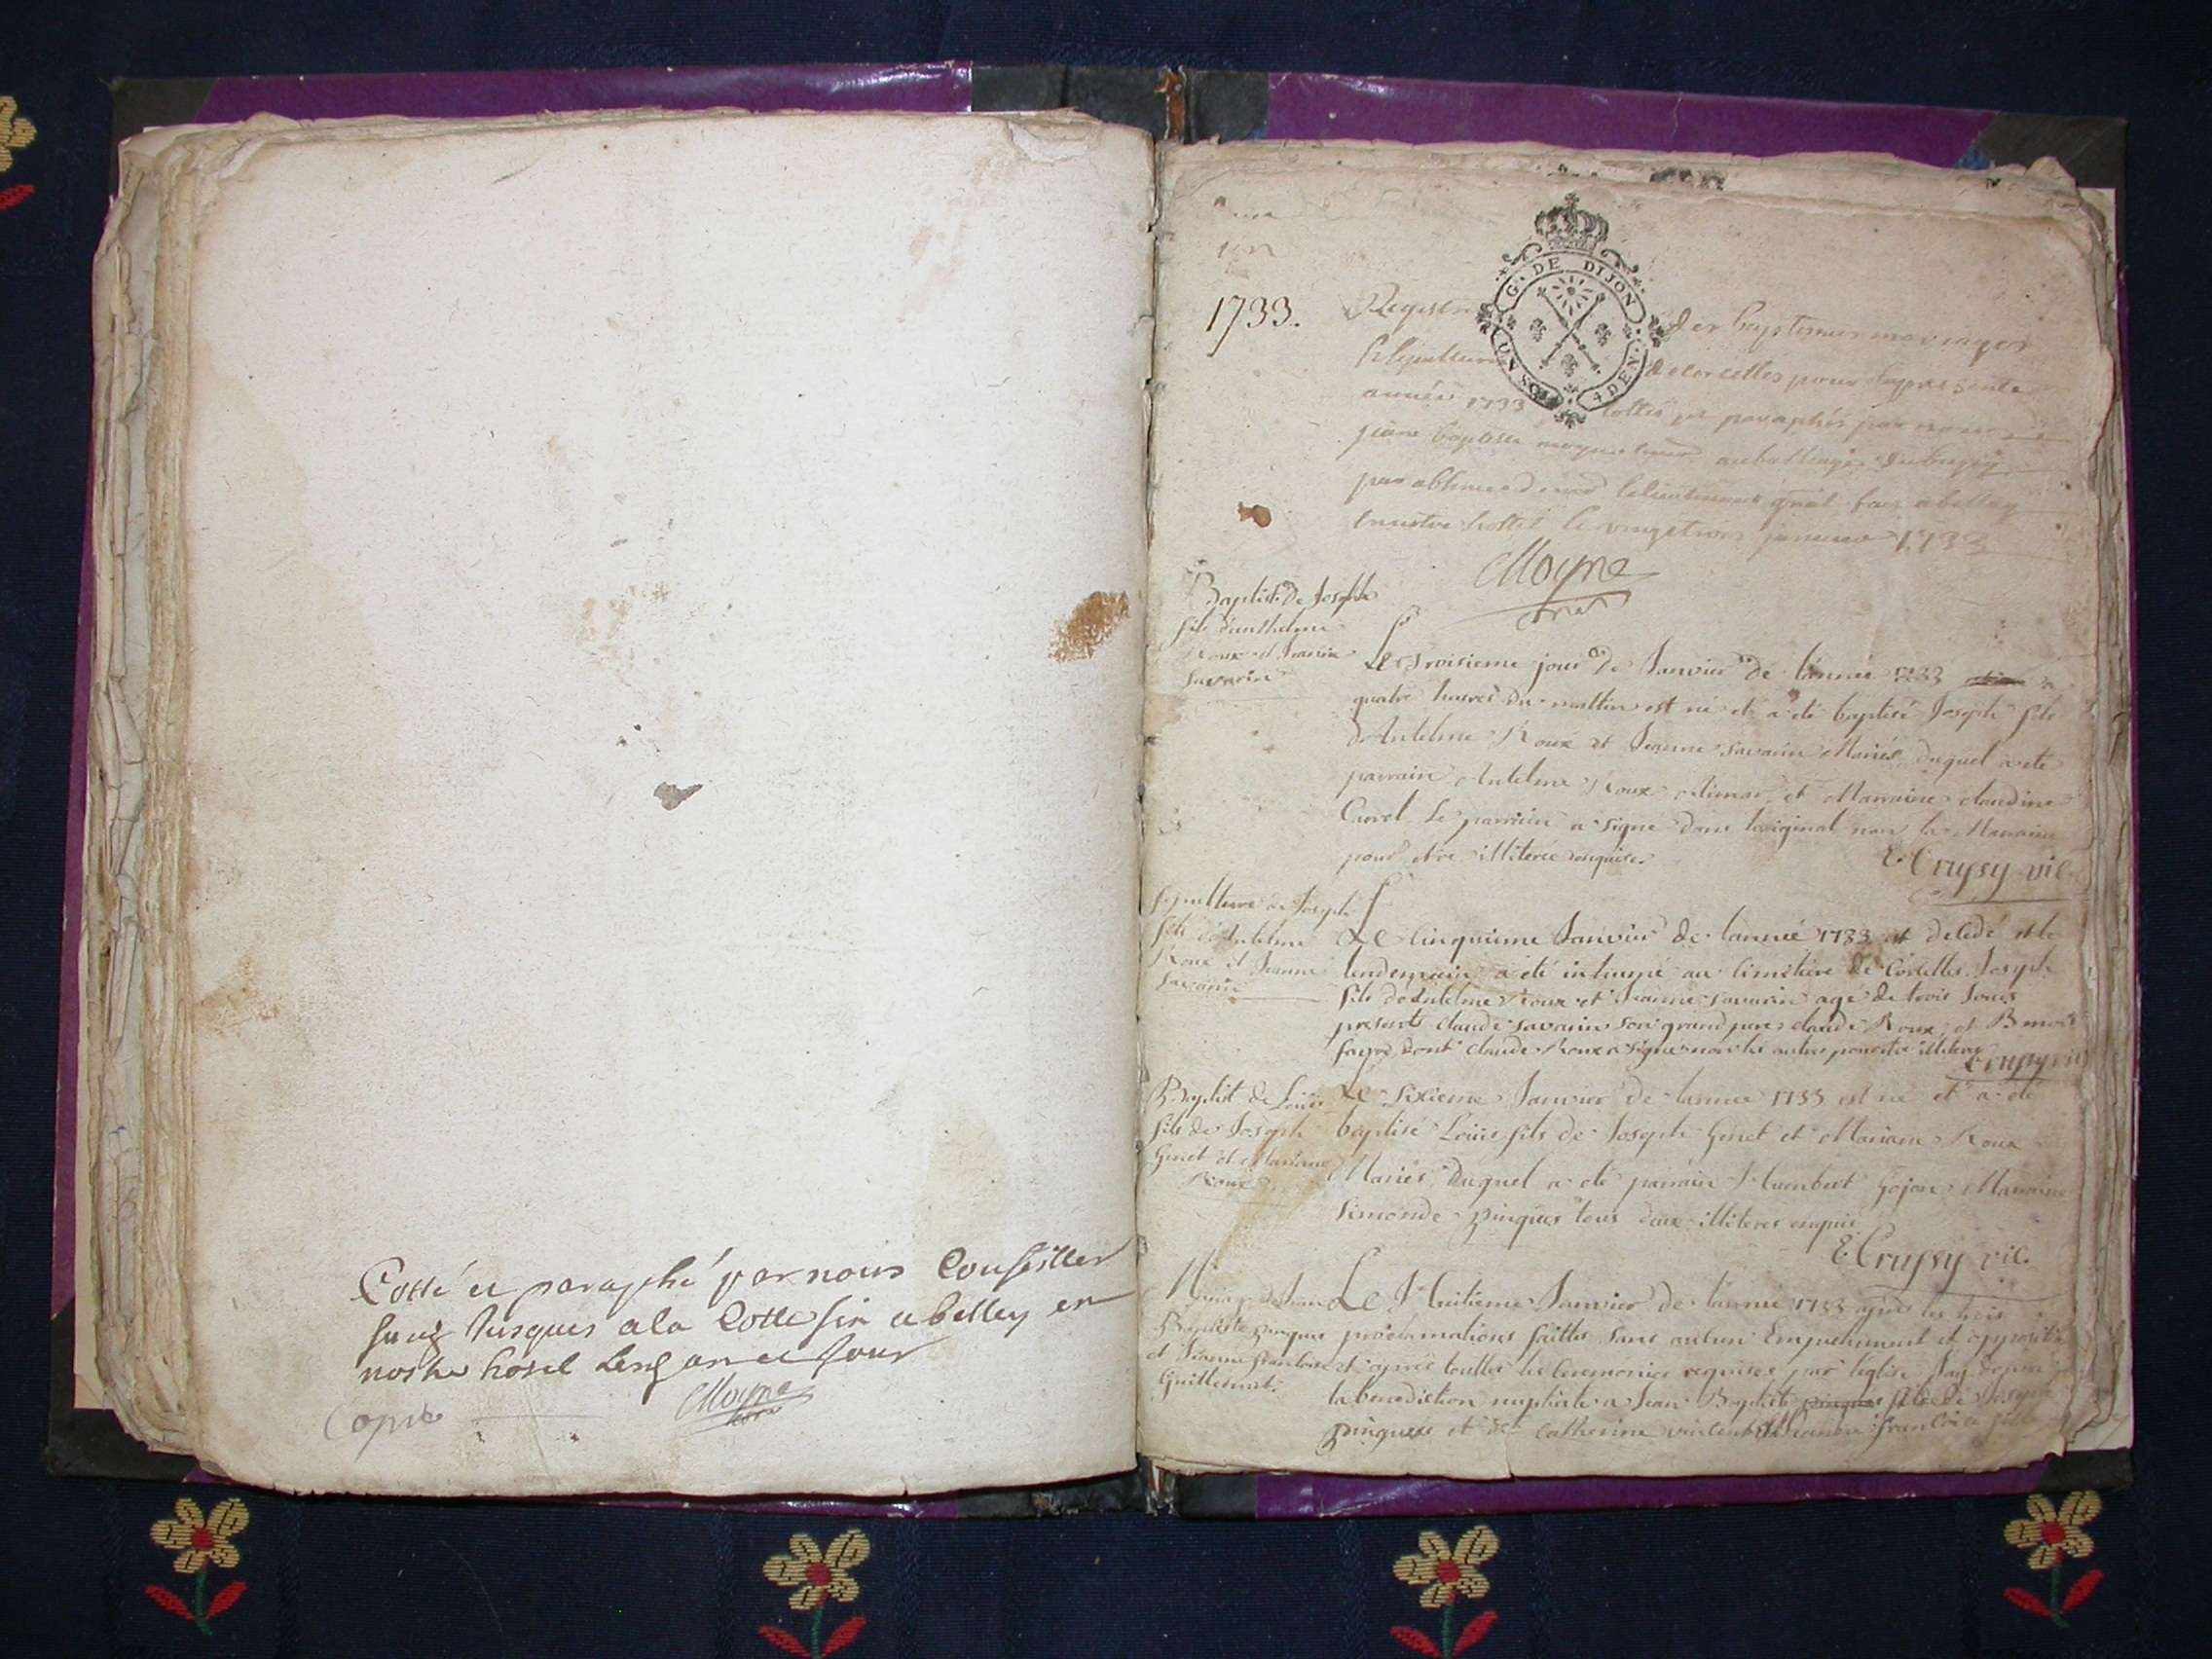 Cotté et paraphé par nous Conseiller
susd Jusques a la Cotte fin a belley en
nostre hotel Les an et Jour
Moyne
Copie
G. DE DIJON
UN SOL
4 DEN.
1733.
Registre des baptemes mariages
Sepultures de corcelles pour la presente
année 1733 cottés et paraphés par nous
baptiste moyne au balliage du bugey
par absence de le lieutenant gnal fait a belley
en nostre hostel le vingt trois janvier 1733
Moyne
Baptist. de Joseph
fils d'anthelme
Roux et Jeanne
Savarin
Le Troisieme jour de Janvier de l'année 1733 a
quatre heures du mattin est né et a été baptisé Joseph fils
d'Antelme Roux et Jeanne Savarin Mariés duquel a été
parrain Antelme Roux et Marraine claudine
Le parrain a signé dans l'original non la Marraine
pour être illiterée enquise.
E. Crussy vic.
Sepulture de Joseph
fils d'Antelme
Roux et Jeanne
Savarin
Le Cinquieme Janvier de l'année 1733 est decedé et le
lendemain a été inhumé au cimetiere de Corcelles Joseph
fils d'Antelme Roux et Jeanne Savarin agé de trois jours
presents claude Savarin son grand pere claude Roux et
dont claude Roux a signé non les autres pour être illiteres
Crussy vic
Baptist. de Loüis
fils de Joseph
Ginet et Mariane
Roux
Le Sixieme Janvier de l'année 1733 est né et a été
baptisé Loüis fils de Joseph Ginet et Mariane Roux
Mariés, duquel a été parrain Humbert Gojon Marraine
Simonde pinques tous deux illiteres enquis
E. Crussy vic.
Mariage de Jean
Baptiste pinques
et Jeanne francoise
Guillemot.
Le Huitieme Janvier de l'année 1733 après les trois
proclamations faittes sans aucun Empechement et opposition
et après touttes les ceremonies requises par l'église J'ay donné
la benediction nuptiale a Jean Baptiste pinques fils de Joseph
pinques et de Catherine vincent et Jeanne francoise fille